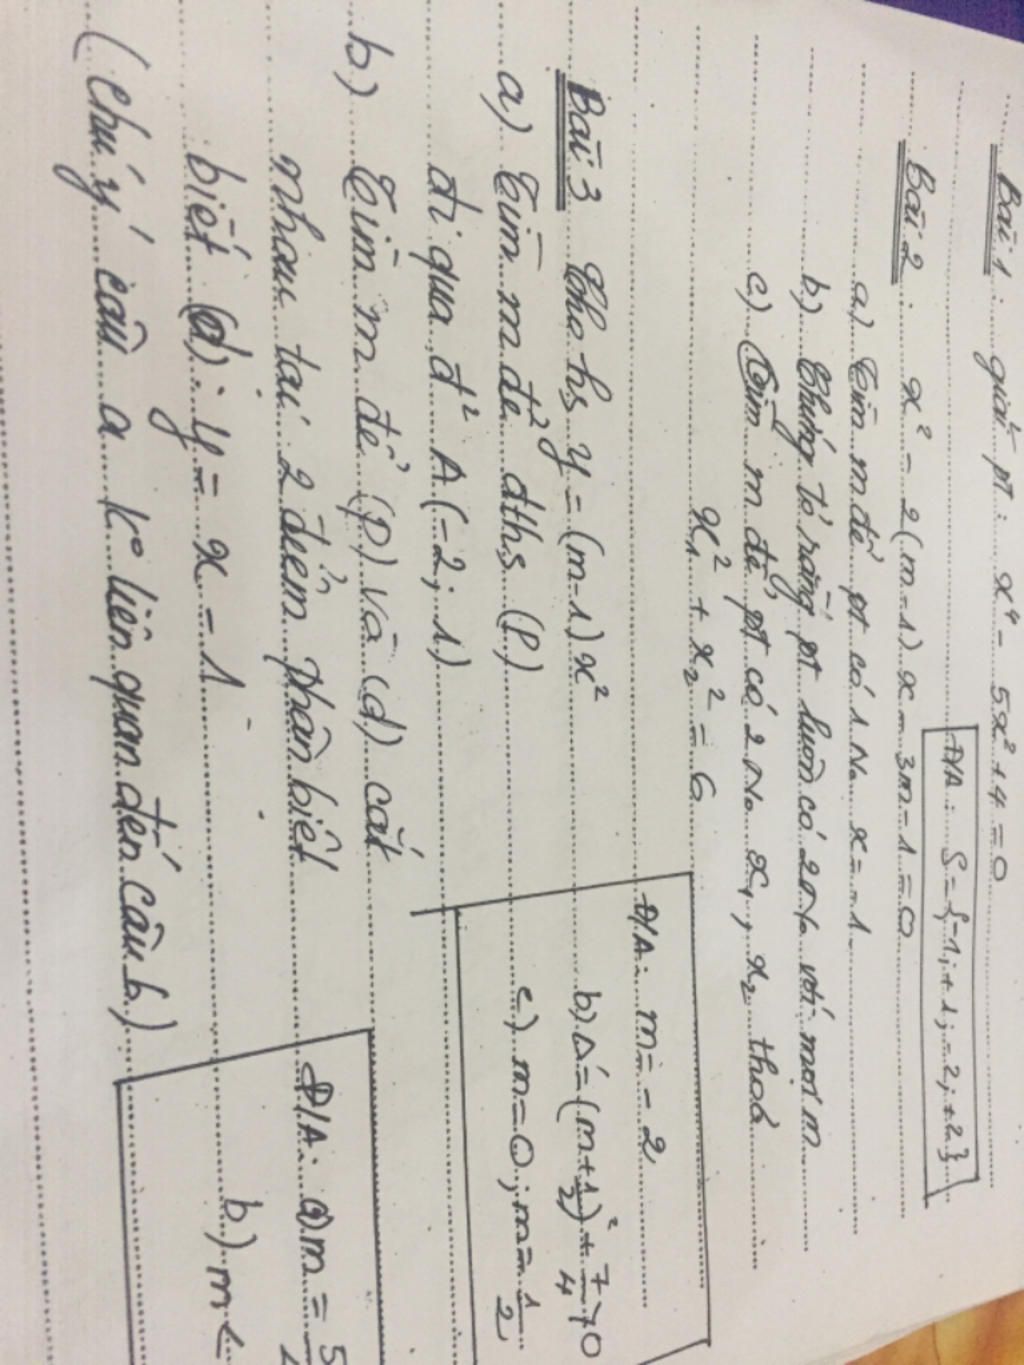 Bài 1: giải pt: x⁴ - 5x² + 4 = 0
Đ/A: S = {-1; +1; -2; +2}
Bài 2: x² - 2(m-1)x - 3m - 1 = 0
a) Tìm m để pt có 1 No x = -1
b) Chứng tỏ rằng pt luôn có 2 No với mọi m
c) Tìm m để pt có 2 No x₁, x₂ thoả
x₁² + x₂² = 6
Đ/A: m = -2
b) Δ' = (m + 1/2)² + 7/4 > 0
c) m = 0; m = 1/2
Bài 3 Cho hs y = (m-1)x²
a) Tìm m để đths (P)
đi qua đ² A(-2; 1)
b) Tìm m để (P) và (d) cắt
nhau tại 2 điểm phân biệt
biết (d): y = x - 1
(chú ý câu a k° liên quan đến câu b)
Đ/A: a) m = 5
b) m <